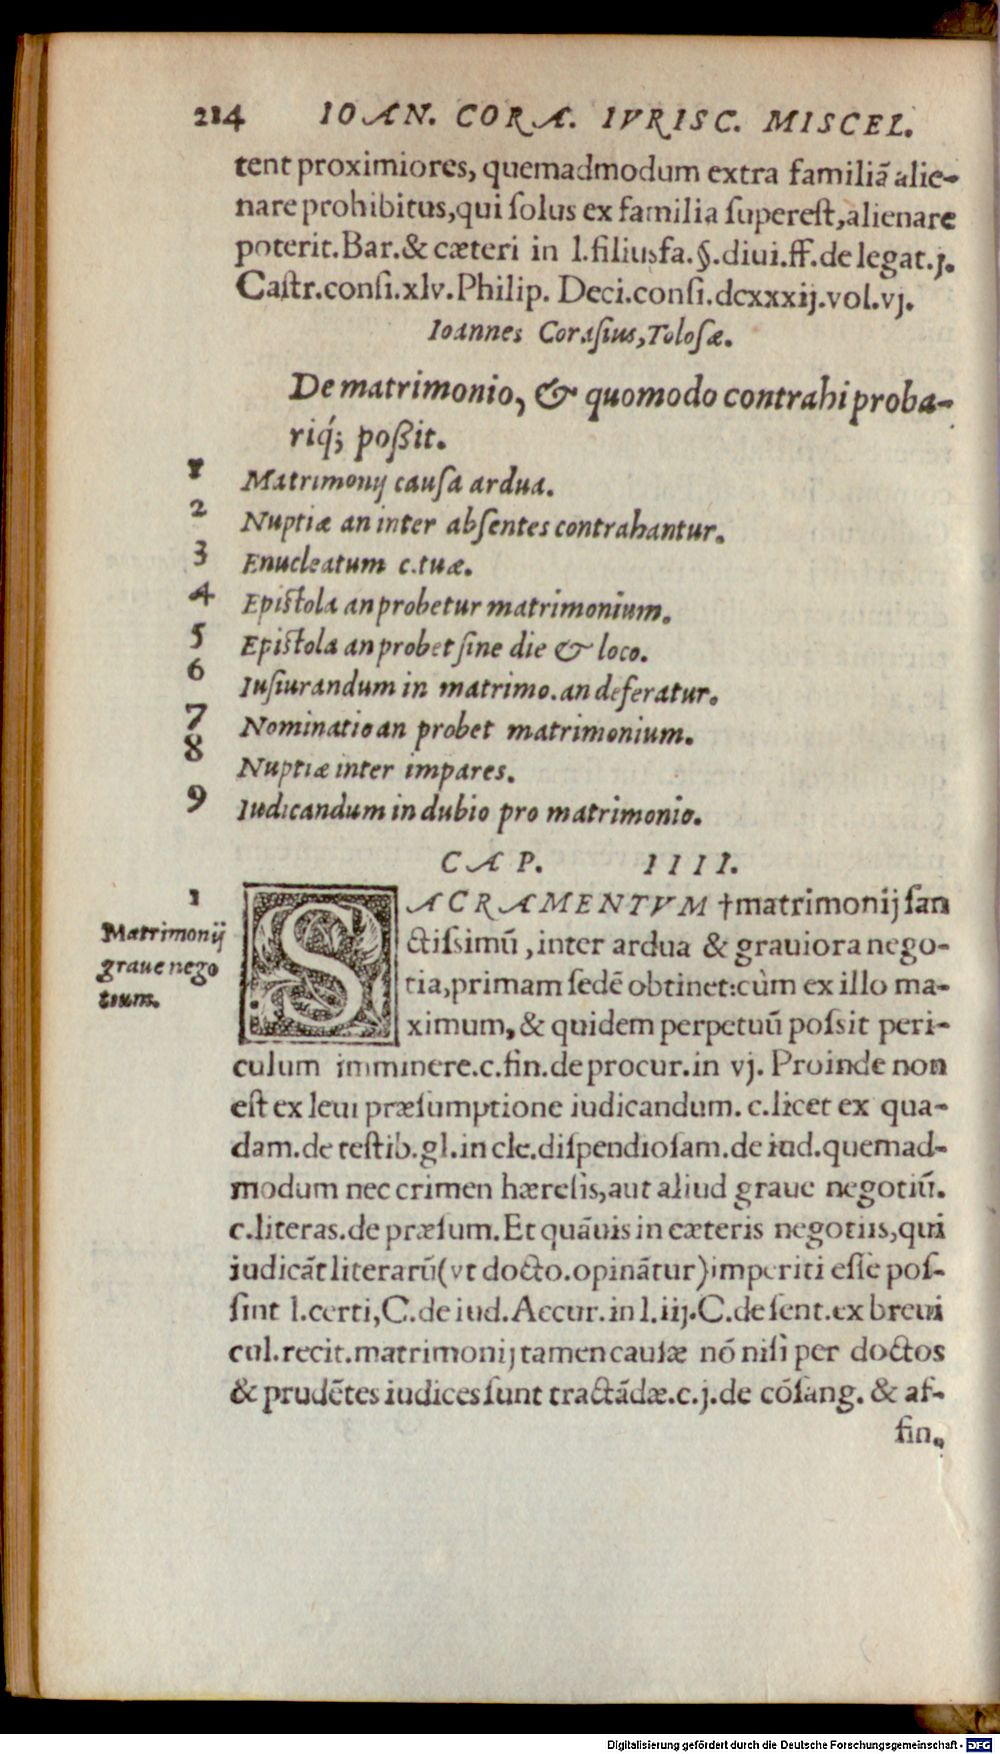 214 IOAN. CORA. IVRISC. MISCEL.
tent proximiores, quemadmodum extra familiā alie-
nare prohibitus, qui ſolus ex familia ſupereſt, alienare
poterit. Bar. & cæteri in l. filiusfa. §. diui. ff. de legat. j.
Caſtr. conſi. xlv. Philip. Deci. conſi. dcxxxij. vol. vj.
Ioannes Coraſius, Toloſæ.
De matrimonio, & quomodo contrahi proba-
riq́; poßit.
1 Matrimonij cauſa ardua.
2 Nuptiæ an inter abſentes contrahantur.
3 Enucleatum c. tuæ.
4 Epiſtola an probetur matrimonium.
5 Epiſtola an probet ſine die & loco.
6 Iuſiurandum in matrimo. an deferatur.
7 Nominatio an probet matrimonium.
8 Nuptiæ inter impares.
9 Iudicandum in dubio pro matrimonio.
CAP. IIII.
1
Matrimonij
graue nego
tium.
SACRAMENTVM †matrimonij ſan
ctiſsimū, inter ardua & grauiora nego-
tia, primam ſedē obtinet: cùm ex illo ma-
ximum, & quidem perpetuū poſsit peri-
culum imminere. c. fin. de procur. in vj. Proinde non
eſt ex leui præſumptione iudicandum. c. licet ex qua-
dam. de teſtib. gl. in cle. diſpendioſam. de iud. quemad-
modum nec crimen hæreſis, aut aliud graue negotiū.
c. literas. de præſum. Et quāuis in cæteris negotiis, qui
iudicāt literarū (vt docto. opinātur) imperiti eſſe poſ-
ſint l. certi, C. de iud. Accur. in l. iij. C. de ſent. ex breui
cul. recit. matrimonij tamen cauſæ nō niſi per doctos
& prudētes iudices ſunt tractādæ. c. j. de cōſang. & af-
fin.
Digitalisierung gefördert durch die Deutsche Forschungsgemeinschaft - DFG